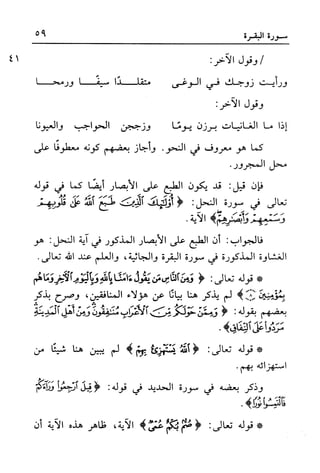 سورة البقرة ٥٩
/ وقول الآخر: ٤١
ورأيت زوجك في الوغى متقلدًا سيفًا ورمحا
وقول الآخر:
إذا ما الغانيات برزن يومًا وزججن الحواجب والعيونا
كما هو معروف في النحو. وأجاز بعضهم كونه معطوفًا على
محل المجرور.
فإن قيل: قد يكون الطبع على الأبصار أيضًا كما في قوله
تعالى في سورة النحل: ﴿أُوْلَٰٓئِكَ ٱلَّذِينَ طَبَعَ ٱللَّهُ عَلَىٰ قُلُوبِهِمْ
وَسَمْعِهِمْ وَأَبْصَٰرِهِمْ﴾ الآية.
فالجواب: أن الطبع على الأبصار المذكور في آية النحل: هو
الغشاوة المذكورة في سورة البقرة والجاثية، والعلم عند الله تعالى.
* قوله تعالى: ﴿وَمِنَ ٱلنَّاسِ مَن يَقُولُ ءَامَنَّا بِٱللَّهِ وَبِٱلْيَوْمِ ٱلْءَاخِرِ وَمَا هُم
بِمُؤْمِنِينَ ۝٨﴾ لم يذكر هنا بيانًا عن هؤلاء المنافقين، وصرح بذكر
بعضهم بقوله: ﴿وَمِمَّنْ حَوْلَكُم مِّنَ ٱلْأَعْرَابِ مُنَٰفِقُونَ وَمِنْ أَهْلِ ٱلْمَدِينَةِ
مَرَدُواْ عَلَى ٱلنِّفَاقِ﴾.
* قوله تعالى: ﴿ٱللَّهُ يَسْتَهْزِئُ بِهِمْ﴾ لم يبين هنا شيئًا من
استهزائه بهم.
وذكر بعضه في سورة الحديد في قوله: ﴿قِيلَ ٱرْجِعُواْ وَرَآءَكُمْ
فَٱلْتَمِسُواْ نُورًا﴾.
* قوله تعالى: ﴿صُمٌّ بُكْمٌ عُمْىٌ﴾ الآية، ظاهر هذه الآية أن